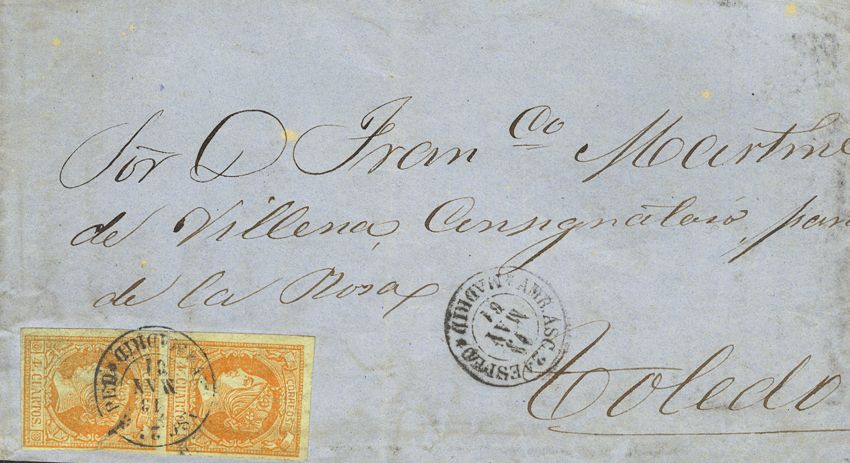 Sor D Fran co Martine
de Villena, Consignatario, para
de la Rosa
Toledo
AMB. ASC. 2A ESPED. MADRID
MAY
61
4 CUARTOS
4 CUARTOS
CORREOS
MADRID
61
MAY